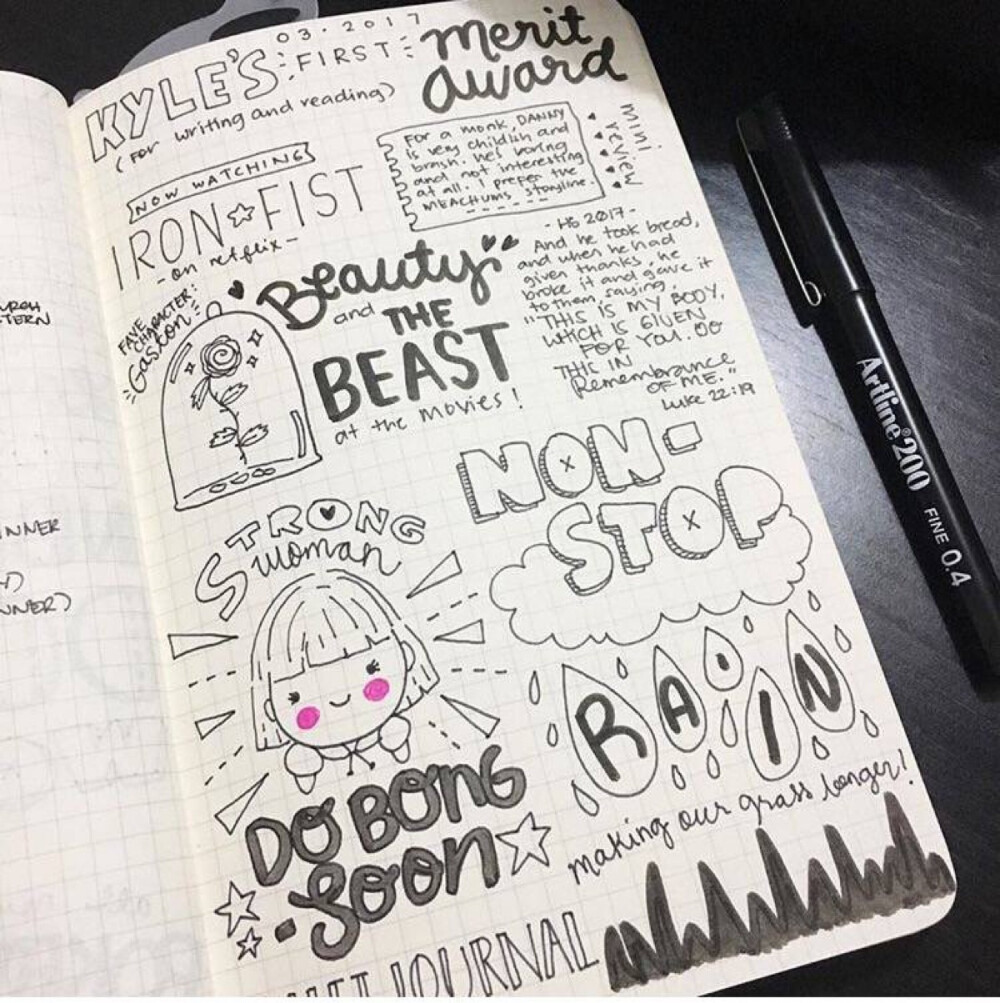 03.2017
KYLE'S FIRST merit
award
(for writing and reading)
NOW WATCHING
IRON FIST
- on netflix -
For a monk, DANNY
is very childish and
brash. He's boring
and not interesting
at all. I prefer the
MEACHUMS storyline.
mini
review
FAVE
CHARACTER:
Gaston
Beauty
and THE
BEAST
at the movies!
- HS 2017 -
And he took bread,
and when he had
given thanks, he
broke it and gave it
to them, saying,
"THIS IS MY BODY,
WHICH IS GIVEN
FOR YOU. DO
THIS IN
Remembrance
OF ME."
Luke 22:19
STRONG
woman
DO BONG
-Soon
NON-
STOP
RAIN
making our grass longer!
JOURNAL
NNER
NNER)
Artline 200 FINE 0.4